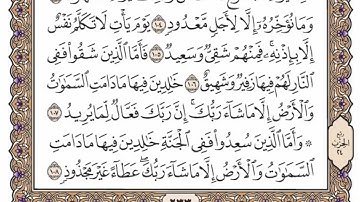 وَمَا نُؤَخِّرُهُۥٓ إِلَّا لِأَجَلٍ مَّعْدُودٍ ١٠٤ يَوْمَ يَأْتِ لَا تَكَلَّمُ نَفْسٌ
إِلَّا بِإِذْنِهِۦۚ فَمِنْهُمْ شَقِىٌّ وَسَعِيدٌ ١٠٥ فَأَمَّا ٱلَّذِينَ شَقُوا۟ فَفِى
ٱلنَّارِ لَهُمْ فِيهَا زَفِيرٌ وَشَهِيقٌ ١٠٦ خَٰلِدِينَ فِيهَا مَا دَامَتِ ٱلسَّمَٰوَٰتُ
وَٱلْأَرْضُ إِلَّا مَا شَآءَ رَبُّكَۚ إِنَّ رَبَّكَ فَعَّالٌ لِّمَا يُرِيدُ ١٠٧
۞ وَأَمَّا ٱلَّذِينَ سُعِدُوا۟ فَفِى ٱلْجَنَّةِ خَٰلِدِينَ فِيهَا مَا دَامَتِ
ٱلسَّمَٰوَٰتُ وَٱلْأَرْضُ إِلَّا مَا شَآءَ رَبُّكَۖ عَطَآءً غَيْرَ مَجْذُوذٍ ١٠٨
ربع
الحزب
٢٤
٢٣٣